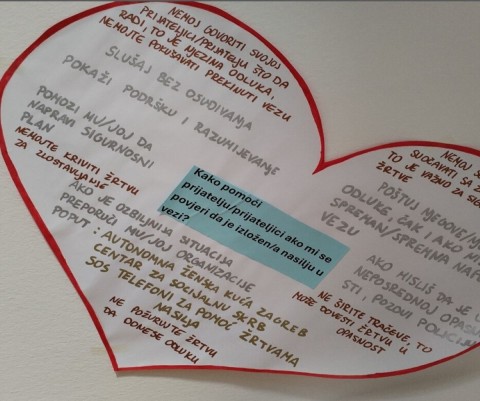 NEMOJ GOVORITI SVOJOJ
PRIJATELJICI/PRIJATELJU ŠTO DA
RADI, TO JE NJEZINA ODLUKA,
NEMOJTE POKUŠAVATI PREKINUTI VEZU
SLUŠAJ BEZ OSUĐIVANJA
POKAŽI PODRŠKU I RAZUMIJEVANJE
POMOZI MU/JOJ DA
NAPRAVI SIGURNOSNI
PLAN
NEMOJTE KRIVITI ŽRTVU
ZA ZLOSTAVLJANJE
AKO JE OZBILJNIJA SITUACIJA
PREPORUČI MU/JOJ ORGANIZACIJE
POPUT: AUTONOMNA ŽENSKA KUĆA ZAGREB
CENTAR ZA SOCIJALNU SKRB
SOS TELEFONI ZA POMOĆ ŽRTVAMA
NASILJA
NE POŽURUJTE ŽRTVU
DA DONESE ODLUKU
Kako pomoći
prijatelju/prijateljici ako mi se
povjeri da je izložen/a nasilju u
vezi?
NEMOJ
SUOČAVATI SA
TO JE VAŽNO ZA
ŽRTVE
POŠTUJ NJEGOVE/
ODLUKE ČAK I AKO
SPREMAN/SPREMNA
VEZU
AKO MISLIŠ DA JE U
NEPOSREDNOJ
STI, POZOVI
NE ŠIRITE TRAČEVE, TO
MOŽE DOVESTI ŽRTVU U
OPASNOST